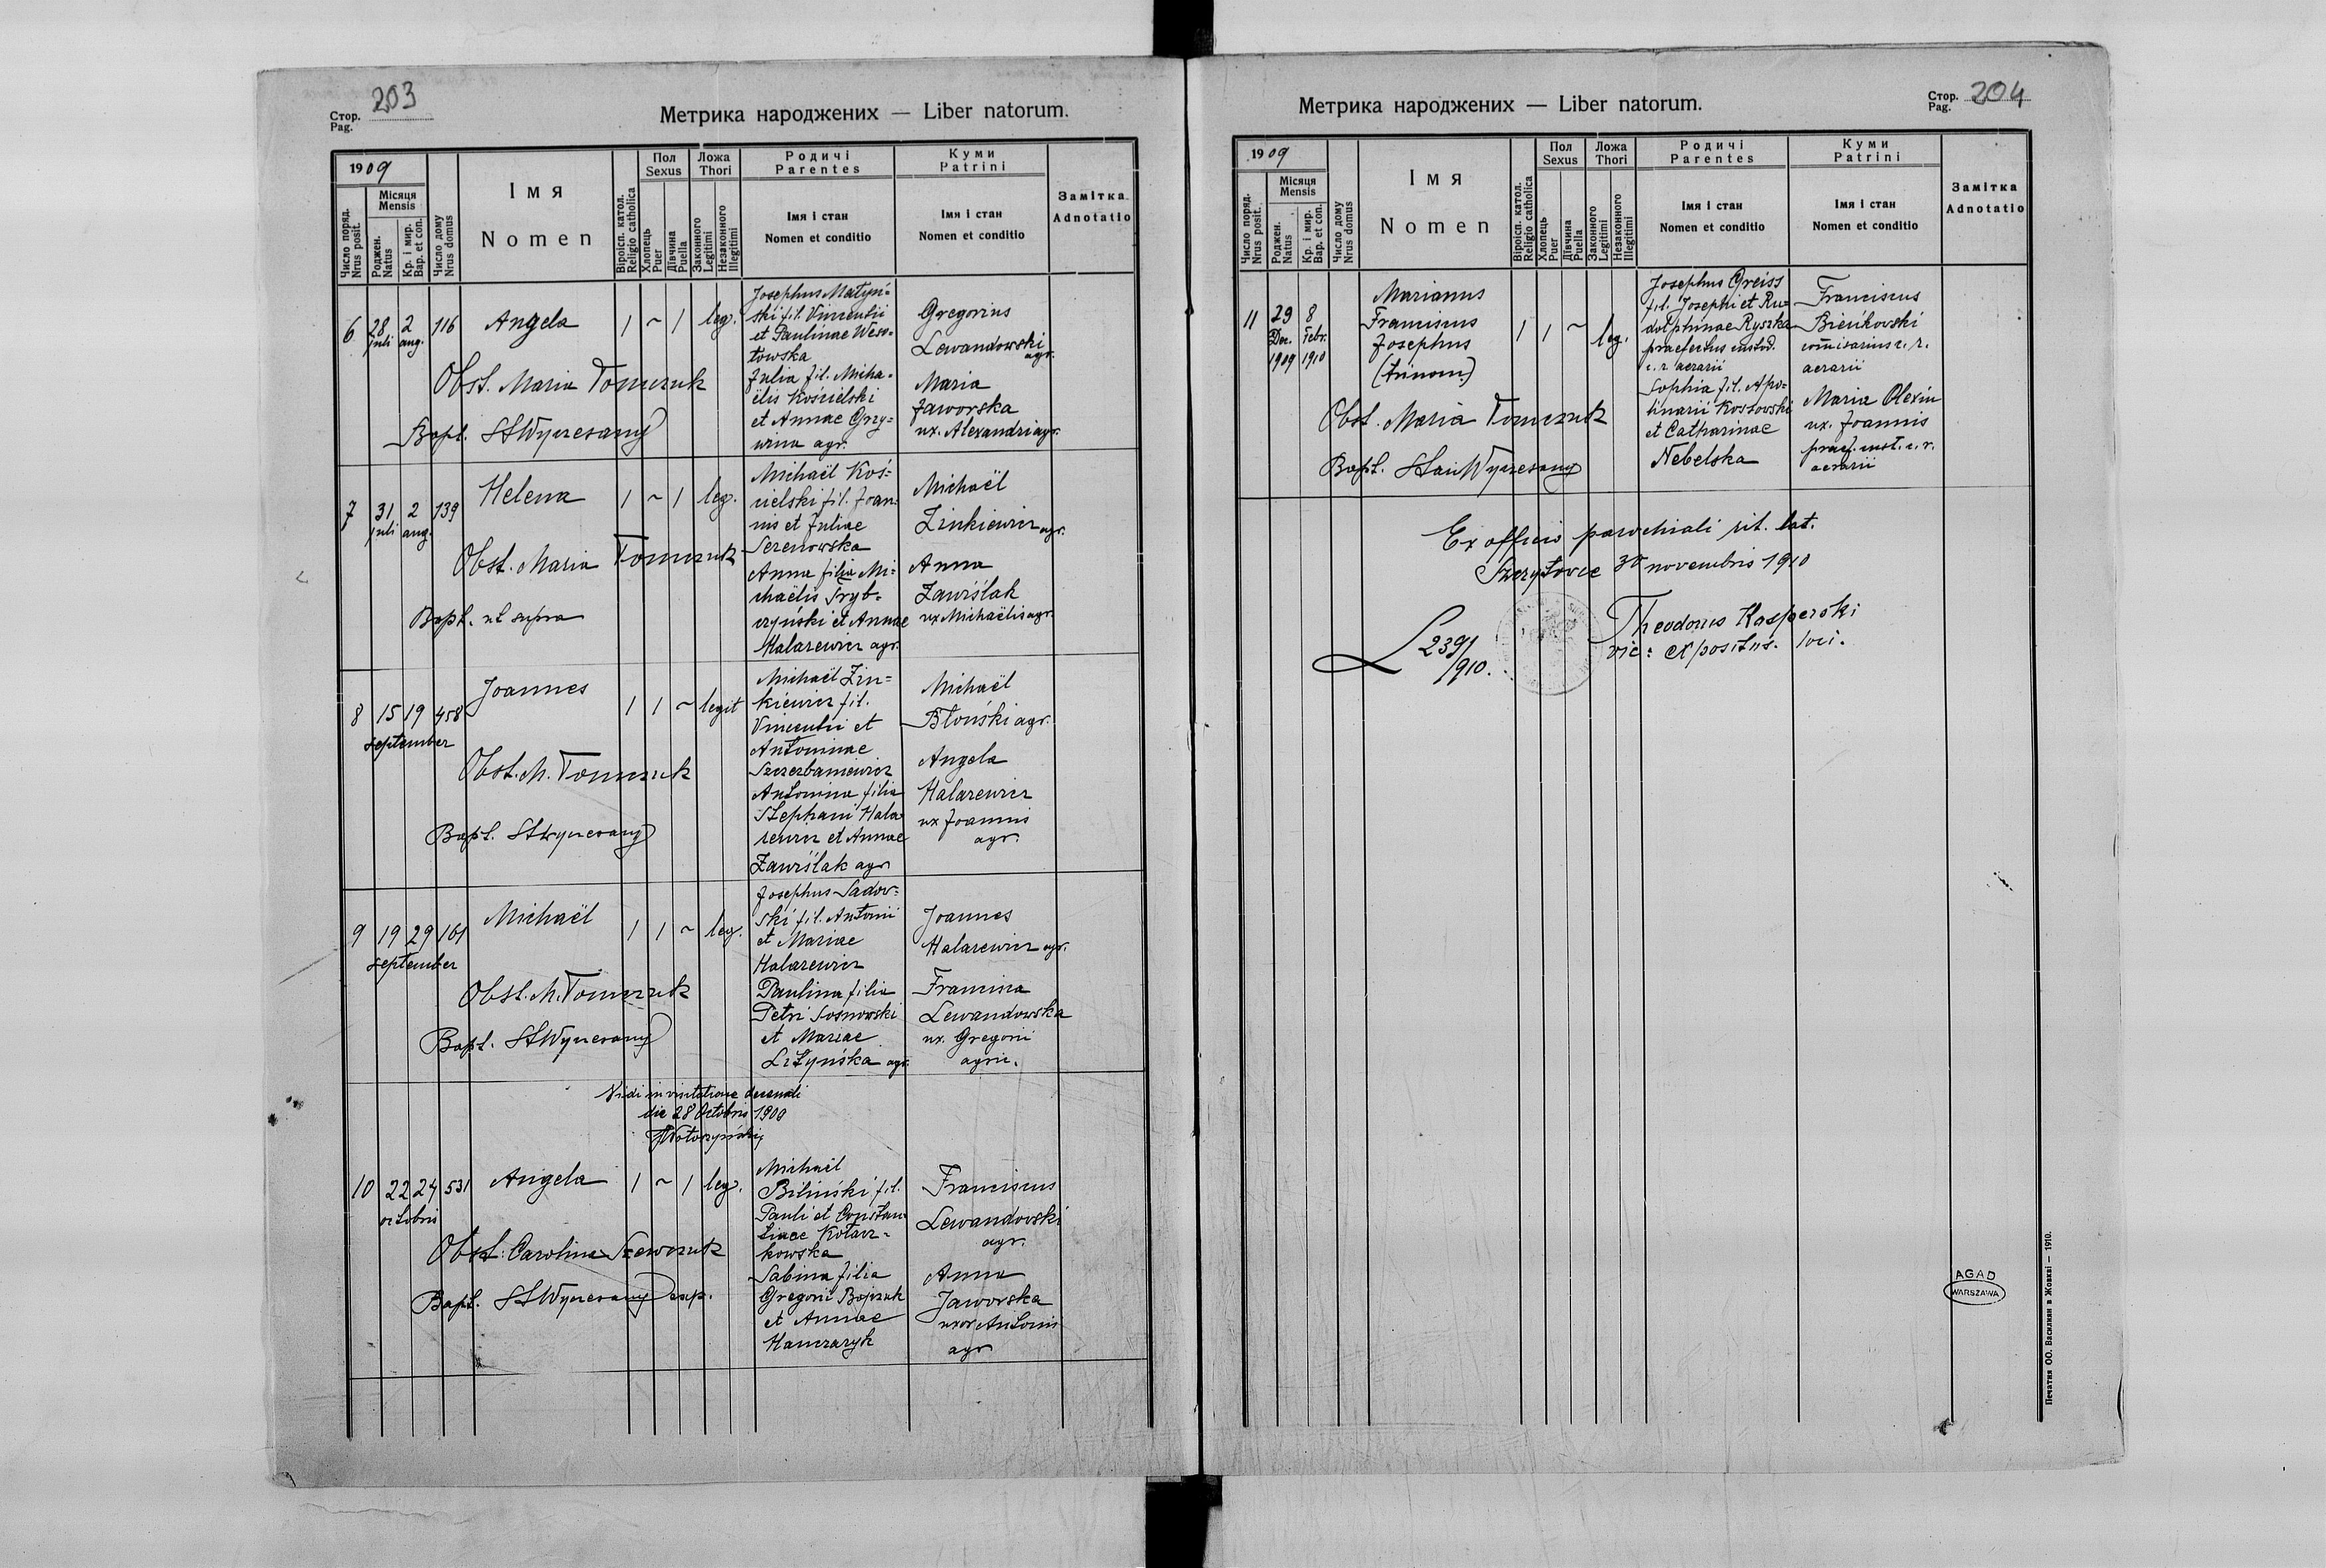 Стор.
Pag.
203
Метрика народжених — Liber natorum.
1909
Число поряд.
Nrus posit.
Місяця
Mensis
Роджен.
Natus
Кр. і мир.
Bap. et con.
Число дому
Nrus domus
Імя
Nomen
Віроісп. катол.
Religio catholica
Пол
Sexus
Хлопець
Puer
Дівчина
Puella
Ложа
Thori
Законного
Legitimi
Незаконного
Illegitimi
Родичі
Parentes
Імя і стан
Nomen et conditio
Куми
Patrini
Імя і стан
Nomen et conditio
Замітка
Adnotatio
6 28 juli 2 aug. 116 Angela 1 ~ 1 leg.
Obst. Maria Tomczuk
Bapt. StWyczesany
Josephus Matyń-
ski fil. Vincentii
et Paulinae Weso-
łowska
Julia fil. Micha-
ëlis Kościelski
et Annae
agr.
Gregorius
Lewandowski
agr.
Maria
Jaworska
ux. Alexandri agr.
7 31 juli 2 aug. 139 Helena 1 ~ 1 leg.
Obst. Maria Tomczuk
Bapt. ut supra
Michaël Koś-
cielski fil. Joan-
nis et Juliae
Serenowska
Anna filia Mi-
chaëlis
et Annae
Halarewicz agr.
Michaël
Zinkiewicz agr.
Anna
Zawiślak
ux Michaëlis agr.
8 15 19 458 Joannes 1 1 ~ legit
september
Obst. M. Tomczuk
Bapt. StWyczesany
Michaël Zin-
kiewicz fil.
Vincentii et
Antoninae
Szczerbaniewicz
Antonina filia
Stephani Hala
rewicz et Annae
Zawiślak agr
Michaël
Błoński agr.
Angela
Halarewicz
ux Joannis
agr.
9 19 29 161 Michaël 1 1 ~ leg.
september
Obst. M. Tomczuk
Bapt. StWyczesany
Josephus Sadow-
ski fil. Antonii
et Mariae
Halarewicz
Paulina filia
Petri Sosnowski
et Mariae
agr.
Joannes
Halarewicz agr.
Francisca
Lewandowska
ux. Gregorii
agric.
Vidi in visitatione decanali
die 28 Octobris 1909
10 22 24 531 Angela 1 ~ 1 leg.
octobris
Obst: Carolina Szewczuk
Bapt. StWyczesany exp.
Michaël
Biliński fil.
Pauli et Constan
tiae Kołacz-
kowska
Sabina filia
Gregorii Bojczuk
et Annae
Hanczaryk
Franciscus
Lewandowski
agr.
Anna
Jaworska
uxor Antonii
agr
Метрика народжених — Liber natorum.
Стор.
Pag.
204
1909
Число поряд.
Nrus posit.
Місяця
Mensis
Роджен.
Natus
Кр. і мир.
Bap. et con.
Число дому
Nrus domus
Імя
Nomen
Віроісп. катол.
Religio catholica
Пол
Sexus
Хлопець
Puer
Дівчина
Puella
Ложа
Thori
Законного
Legitimi
Незаконного
Illegitimi
Родичі
Parentes
Імя і стан
Nomen et conditio
Куми
Patrini
Імя і стан
Nomen et conditio
Замітка
Adnotatio
11 29 Dec. 1909 8 Febr. 1910
Marianus
Franciscus
Josephus
(trinom.)
1 1 ~ leg.
Obst. Maria Tomczuk
Bapt. StanWyczesany
Josephus Greiss
fil. Josephi et Ru-
dolphinae Ryszka
praefectus custod.
c. r. aerarii
Sophia fil. Apo-
linarii Kossowski
et Catharinae
Nebelska
Franciscus
Bieńkovski
com̄isarius c. r.
aerarii
Maria Olexin
ux. Joannis
praef. cust. c. r.
aerarii
Ex officio parochiali rit. lat.
30 novembris 1910
L 239/910.
Theodorus Kasperski
vic: expositus. loci.
AGAD
WARSZAWA
Печатня ОО. Василіян в Жовкві — 1910.